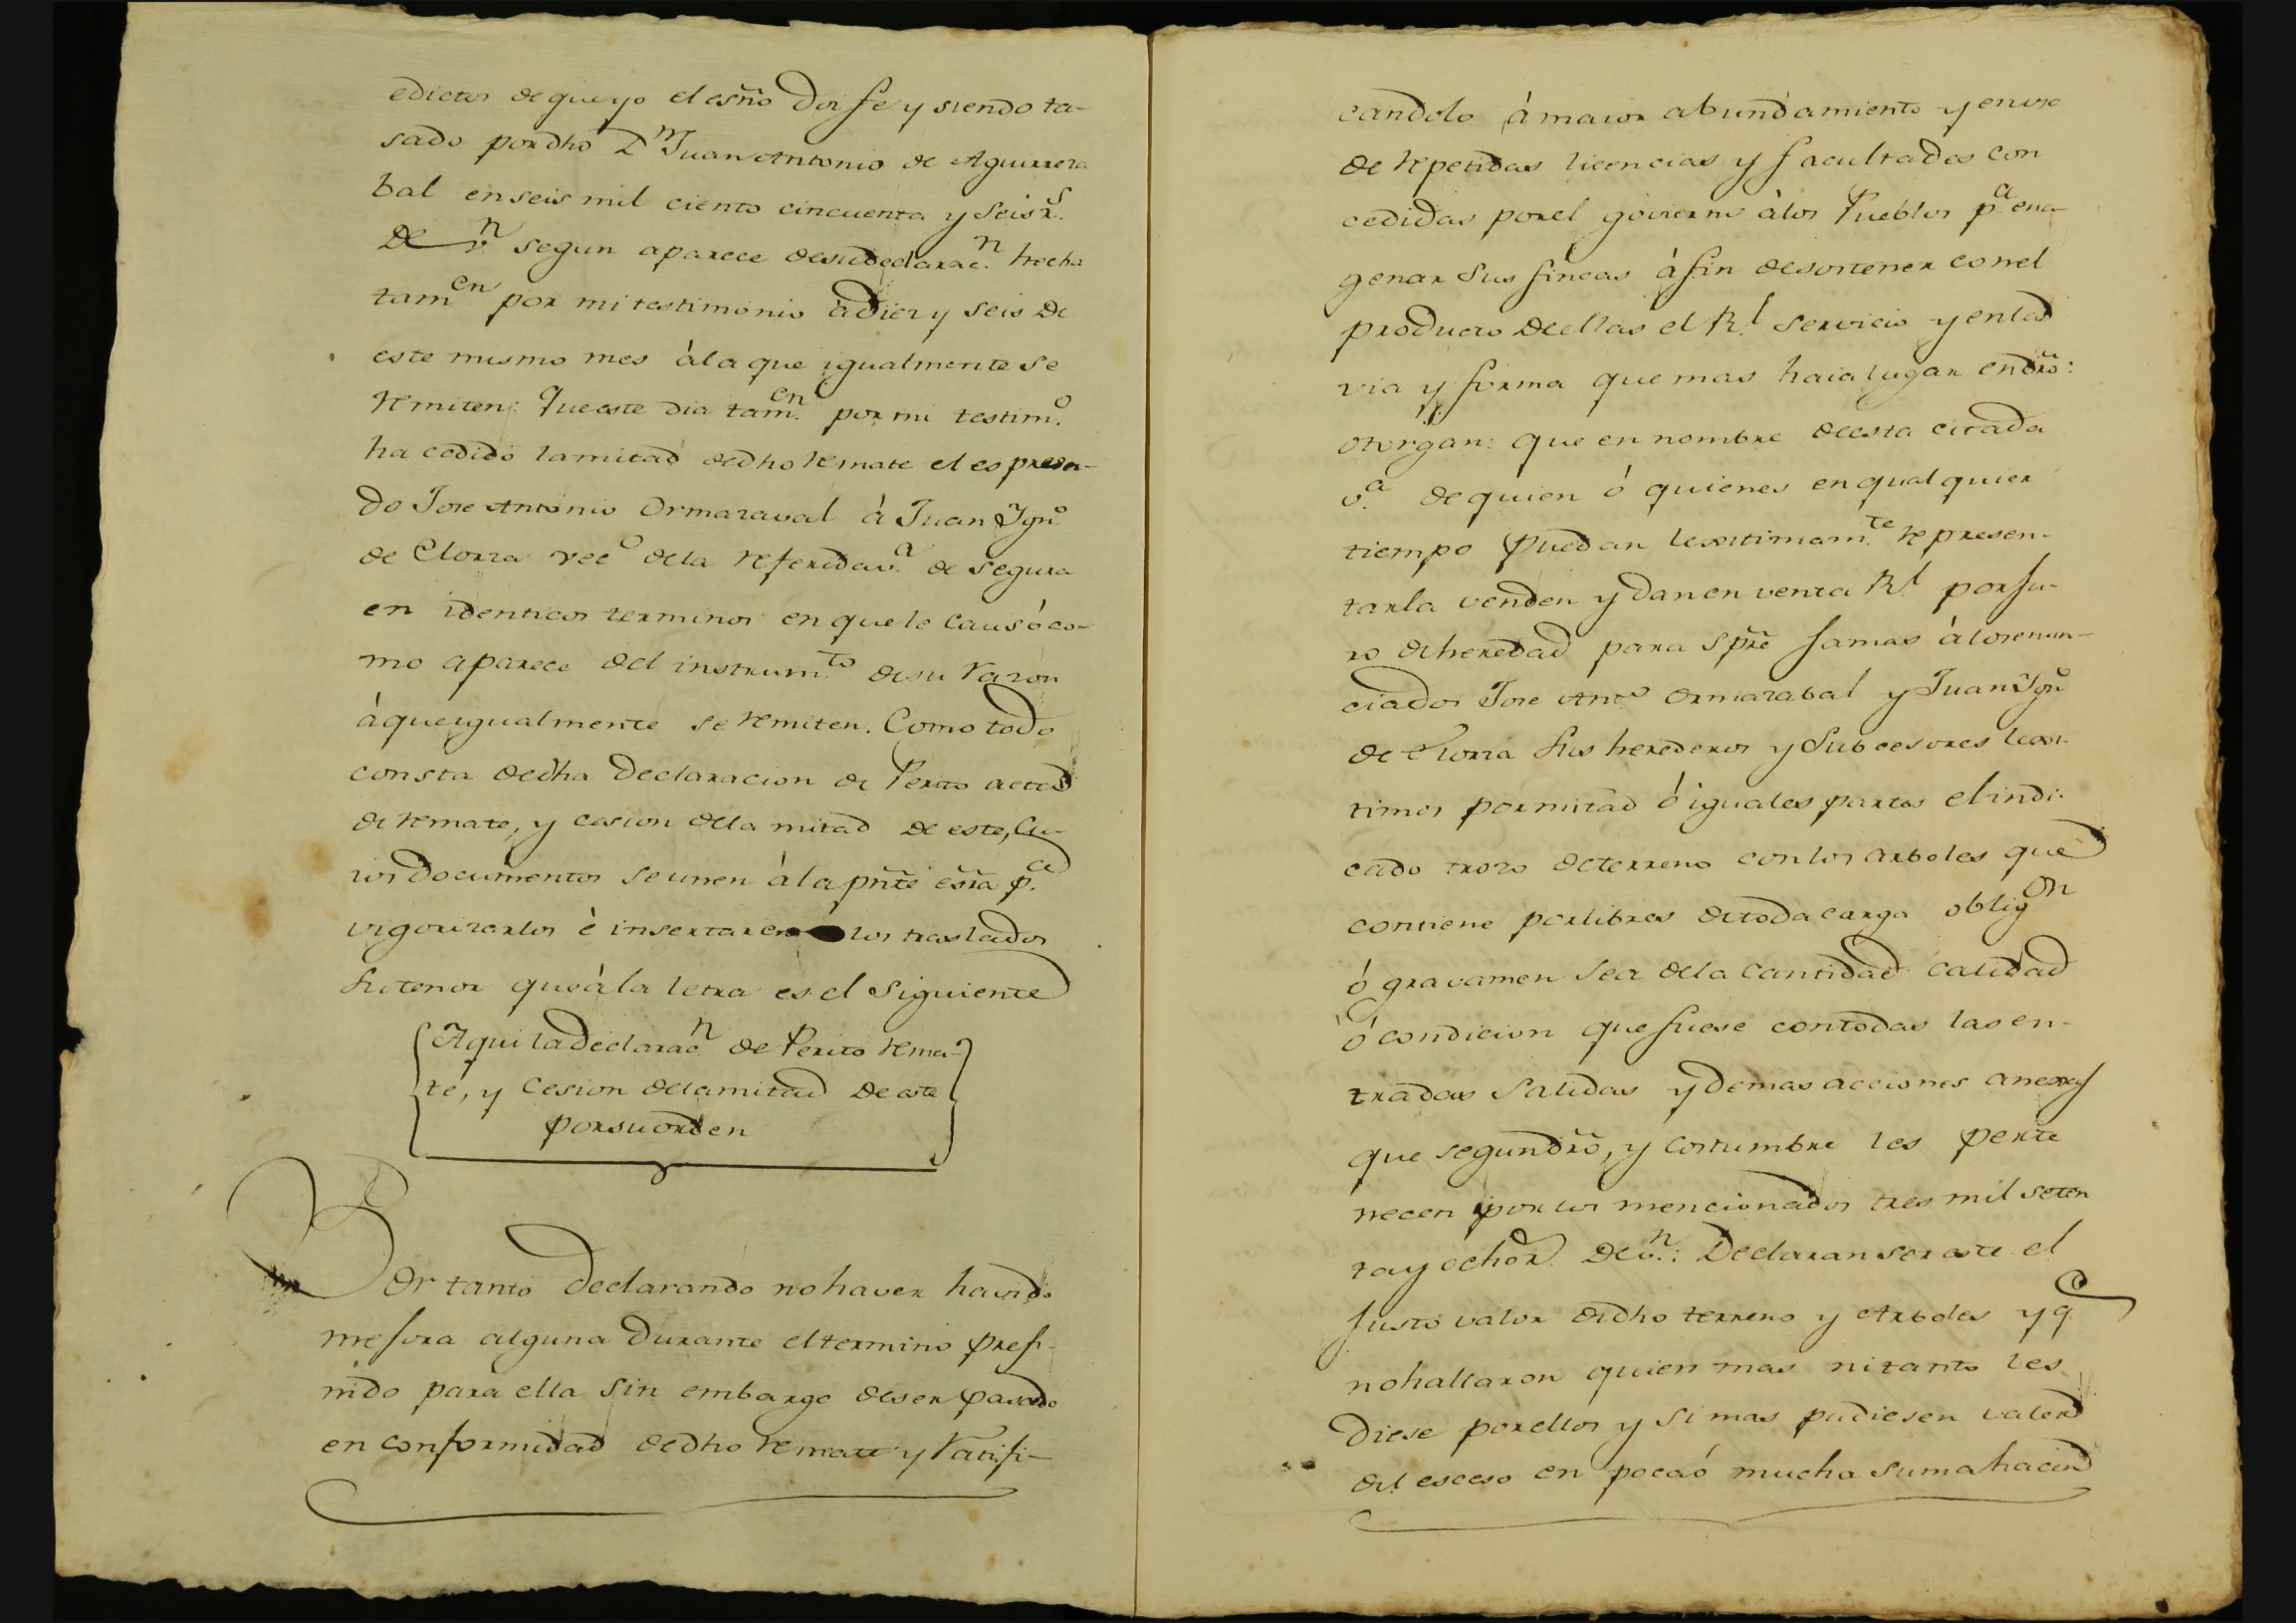 edictos de que yo el esño Doi fe y siendo ta-
sado por dho Dn Juan Antonio de Aguirreza
bal en seis mil ciento cincuenta y seis rs.
De vn. segun aparece de su declaracn. hecha
tamen por mi testimonio à diez y seis De
este mismo mes à la que igualmente se
remiten: Que este dia tamen. por mi testimo.
ha cedido la mitad de dho remate el espresa-
do Jose Antonio Ormazaval à Juan Ygno
de Elorza veco de la referida va. de Segura
en identicos terminos en que le causó co-
mo aparece del instrumto de su razon
à que igualmente se remiten. Como todo
consta de dha Declaracion de Perito acto
de remate, y cesion de la mitad de este, cu-
ios Documentos se unen à la pñte esñra pa.
vigorizarlos è insertar en los traslados
su tenor que à la letra es el Siguiente
Aqui la Declaracn. de Perito rema-
te, y Cesion de la mitad De este
por su orden
Por tanto Declarando no haver havido
mejora alguna Durante el termino prefi-
nido para ella sin embargo de ser pasado
en conformidad de dho remate y ratifi-
candolo à maior abundamiento y en uso
de repetidas licencias y facultades con
cedidas por el govierno à los Pueblos pa ena-
genar sus fincas à fin de sostener con el
producto De ellas el Rl. Servicio y en la
via y forma que mas haia lugar en dr̃o:
otorgan: que en nombre de esta citada
va. de quien ó quienes en qualquier
tiempo puedan lexitimamte. represen-
tarla venden y dan en venta Rl. por Ju-
ro de heredad para spr̃e Jamas à los enun-
ciados Jose Anto Ormazabal y Juan Ygno
de Elorza sus herederos y Subcesores lexi-
timos por mitad ó iguales partes el indi-
cado trozo de terreno con los arboles que
contiene por libres de toda carga obligon
ó gravamen sea de la Cantidad calidad
ó condicion que fuese con todas las en-
tradas Salidas y demas acciones anexas
que segun dr̃o, y costumbre les perte
necen por los mencionados tres mil seten
ta y ocho rs. De vn.: Declaran ser este el
Justo valor de dho terreno y Arboles y q.e
no hallaron quien mas ni tanto les
Diese por ellos y si mas pudiesen valer
del esceso en poca ó mucha suma hacen